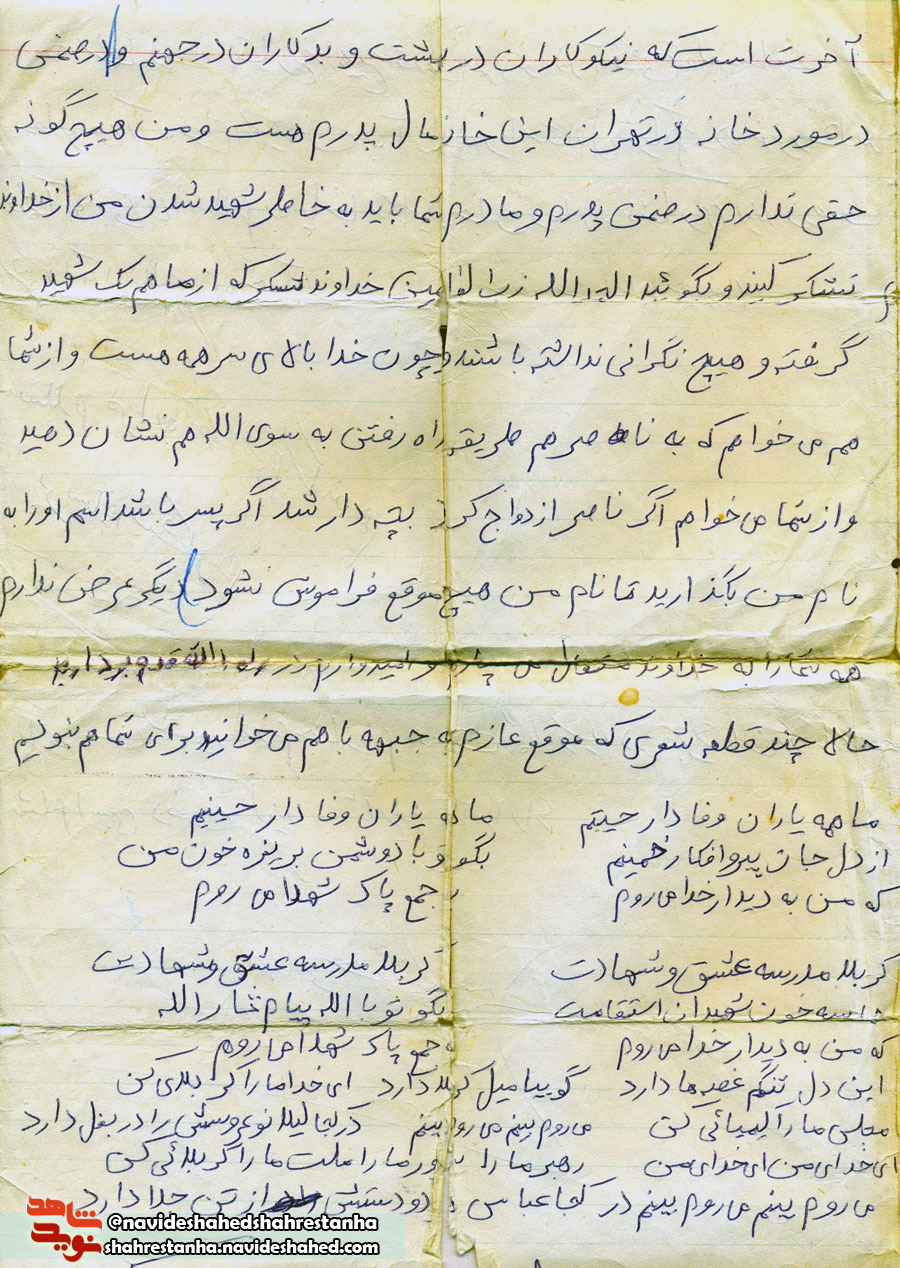 آخرت است که نیکوکاران در بهشت و بدکاران در جهنم و درضمن
در مورد خانه در تهران این خانه مال پدرم هست و من هیچ گونه
حقی ندارم درضمن پدرم و مادرم شما باید به خاطر شهید شدن من از خداوند
تشکر کنید و بگوئید خداوند تشکر که از ما هم یک شهید
گرفته و هیچ نگرانی نداشته باشند و چون خدا بالای سر همه هست و از شما
هم می خواهم که به ناصر هم طریقه راه رفتن به سوی الله هم نشان دهید
و از شما می خواهم اگر ناصر ازدواج کرد بچه دار شد اگر پسر باشد اسم او را به
نام من بگذارید تا نام من هیچ موقع فراموش نشود دیگر عرض ندارم
همه شما را به خداوند متعال می سپارم و امیدوارم در راه الله قدم بردارید
حالا چند قطعه شعری که موقع عازم به جبهه با هم می خوانید برای شما هم بنویسم
ما همه یاران وفادار حینیم ما همه یاران وفادار حینیم
از دل جان پیرو افکار خمینیم بگو تو با دوشمن بریزه خون من
که من به دیدار خدا می روم به جمع پاک شهدا می روم
کربلا مدرسه عشق و شهادت کربلا مدرسه عشق و شهادت
خون شهیدان استقامت بگو تو با الله پیام ثارالله
که من به دیدار خدا می روم به جمع پاک شهدا می روم
این دل تنگم غصه ها دارد گوییا میل کربلا دارد ای خدا ما را کربلای کن
مجلس ما را کیمیائی کن می روم بینم می روم بینم در کجا لیلا نوعروسش را در بغل دارد
ای خدای من ای خدای من رهبر ما را یاور ما را ملت ما را کربلائی کن
می روم بینم می روم بینم در کجا عباس دو دستش از تن جدا دارد
شاهد
نوید
@navideshahedshahrestanha
shahrestanha.navideshahed.com